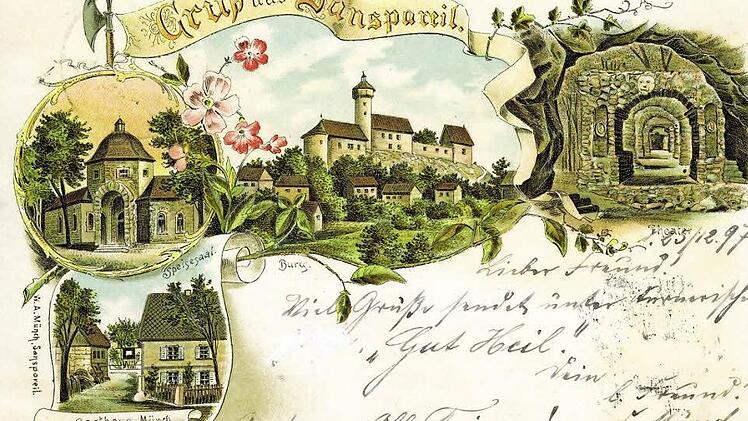 Gruß aus Sanspareil.
Speisesaal.
Burg.
Theater.
23/12.97
Lieber Freund.
Viele Grüße sendet unter turnerische
„Gut Heil."
Dein
Freund.
W. A. Münch, Sanspareil.
Gasthaus Münch